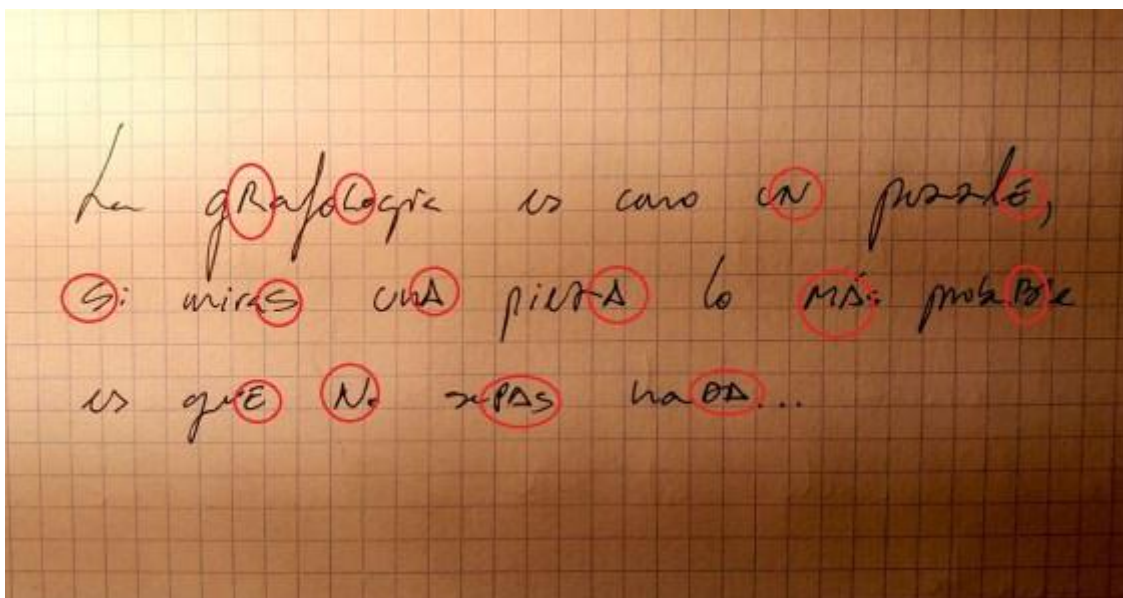 La gRafoLogia es como uN puzzlE,
Si miraS unA piezA lo MÁs probaBle
es quE No sePAs naDA...